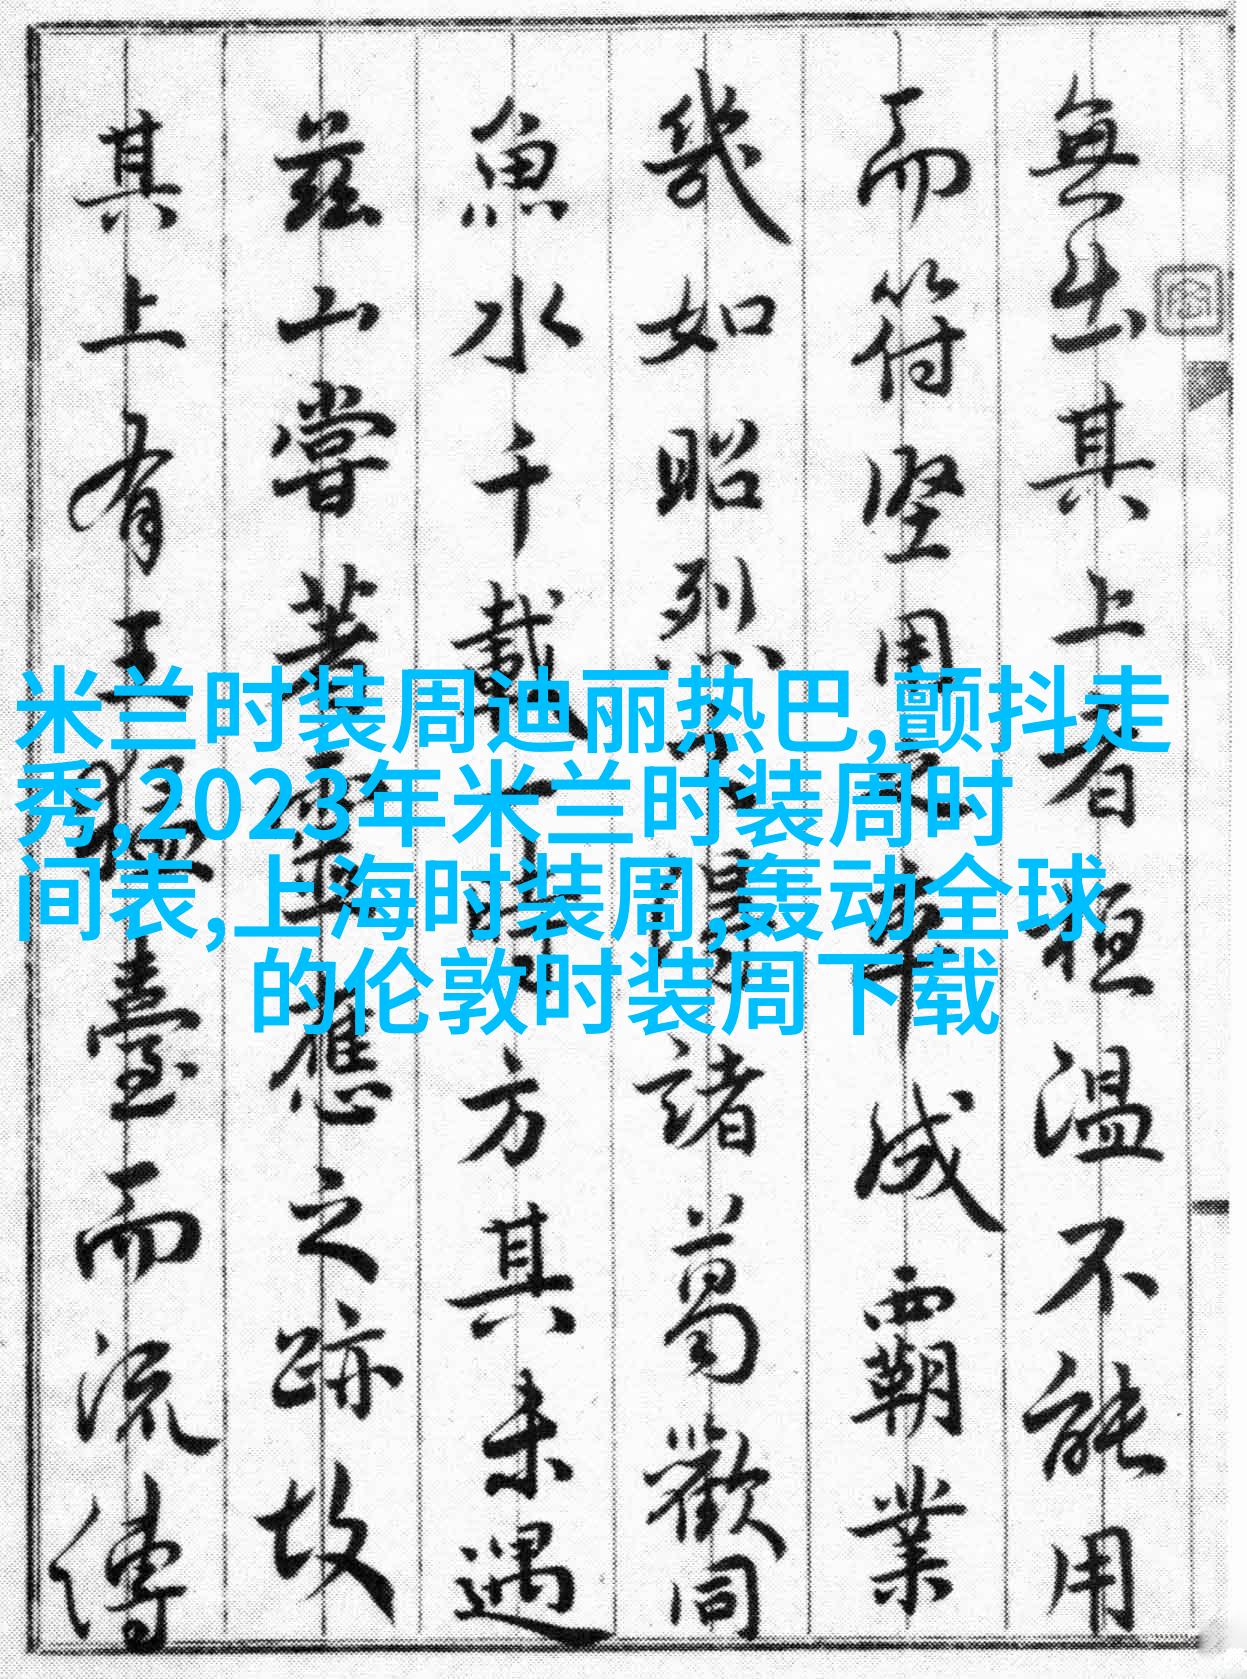 無出其上者桓温不能用
而符堅用之卒成覇業
幾如昭烈之得諸葛歡同
魚水千載一時方其未遇
茲山嘗著靈應之跡故
其上有王猛臺而流傳
米兰时装周迪丽热巴,颤抖走
秀,2023年米兰时装周时
间表,上海时装周,轰动全球
的伦敦时装周下载